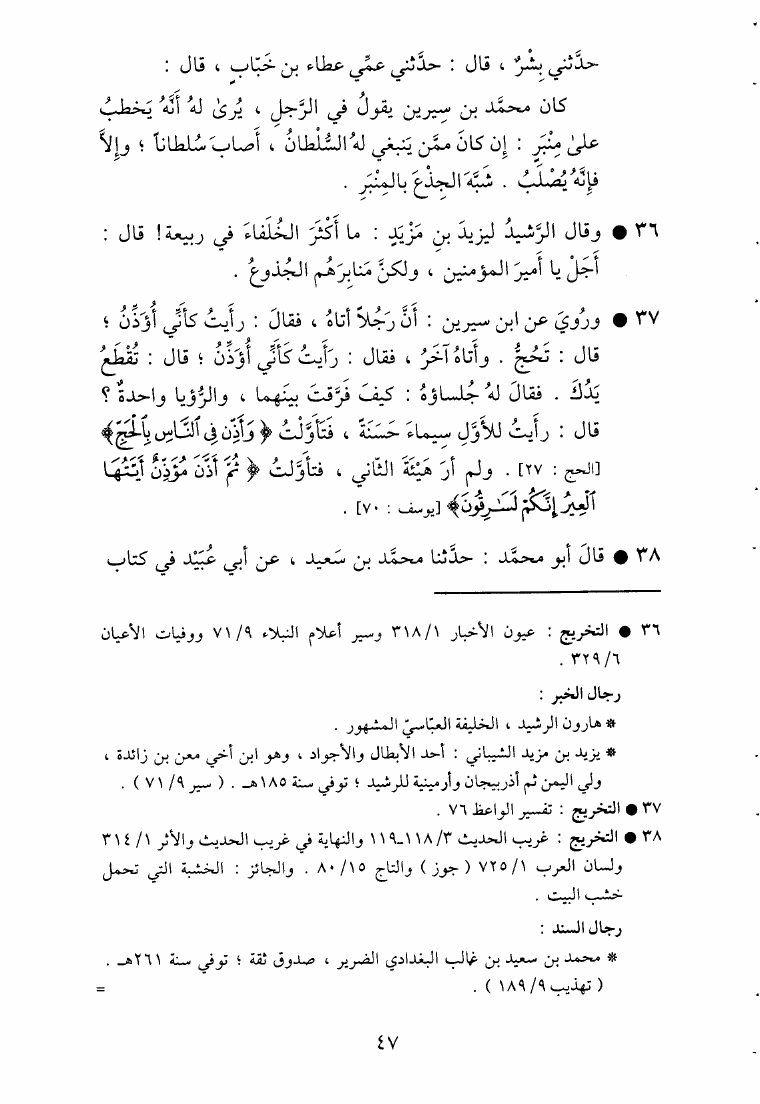 حدَّثني بِشْرٌ ، قال : حدَّثني عمِّي عطاء بن خَبّابٍ ، قال :
كان محمَّد بن سِيرين يقولُ في الرَّجلِ ، يُرىٰ لهُ أنَّهُ يَخطبُ
علىٰ مِنْبَرٍ : إن كانَ ممَّن يَنبغي لهُ السُّلْطانُ ، أصابَ سُلطاناً ؛ وإلاَّ
فإنَّهُ يُصْلَبُ . شَبَّهَ الجِذْعَ بالمِنْبَرِ .
٣٦ ● وقال الرَّشيدُ ليزيدَ بنِ مَزْيَدٍ : ما أَكْثَرَ الخُلَفاءَ في ربيعة! قال :
أجَلْ يا أميرَ المؤمنين ، ولكنَّ مَنابِرَهُم الجُذوعُ .
٣٧ ● ورُوِيَ عن ابن سيرين : أنَّ رَجُلاً أتاهُ ، فقالَ : رأيتُ كأنِّي أُؤَذِّنُ ؛
قال : تَحُجُّ . وأتاهُ آخَرُ ، فقال : رَأيتُ كَأنِّي أُؤَذِّنُ ؛ قال : تُقْطَعُ
يَدُكَ . فقالَ لهُ جُلساؤهُ : كيفَ فَرَّقتَ بينَهما ، والرُّؤيا واحدةٌ ؟
قال : رأيتُ للأوَّلِ سِيماءَ حَسَنَةً ، فَتَأوَّلْتُ ﴿ وَأَذِّن فِى ٱلنَّاسِ بِٱلْحَجِّ ﴾
[الحج : ٢٧] . ولم أرَ هَيْئَةَ الثّاني ، فتأوَّلتُ ﴿ ثُمَّ أَذَّنَ مُؤَذِّنٌ أَيَّتُهَا
ٱلْعِيرُ إِنَّكُمْ لَسَـٰرِقُونَ﴾ [يوسف : ٧٠] .
٣٨ ● قالَ أبو محمَّد : حدَّثنا محمَّد بن سَعيد ، عن أبي عُبَيْد في كتاب
٣٦ ● التخريج : عيون الأخبار ٣١٨/١ وسير أعلام النبلاء ٧١/٩ ووفيات الأعيان
٣٢٩/٦ .
رجال الخبر :
* هارون الرشيد ، الخليفة العبّاسيّ المشهور .
* يزيد بن مزيد الشيباني : أحد الأبطال والأجواد ، وهو ابن أخي معن بن زائدة ،
ولي اليمن ثم أذربيجان وأرمينية للرشيد ؛ توفي سنة ١٨٥هـ . ( سير ٧١/٩ ) .
٣٧ ● التخريج : تفسير الواعظ ٧٦ .
٣٨ ● التخريج : غريب الحديث ١١٨/٣ـ١١٩ والنهاية في غريب الحديث والأثر ٣١٤/١
ولسان العرب ٧٢٥/١ ( جوز ) والتاج ٨٠/١٥ . والجائز : الخشبة التي تحمل
خشب البيت .
رجال السند :
* محمد بن سعيد بن غالب البغدادي الضرير ، صدوق ثقة ؛ توفي سنة ٢٦١هـ .
( تهذيب ١٨٩/٩ ) .
=
٤٧